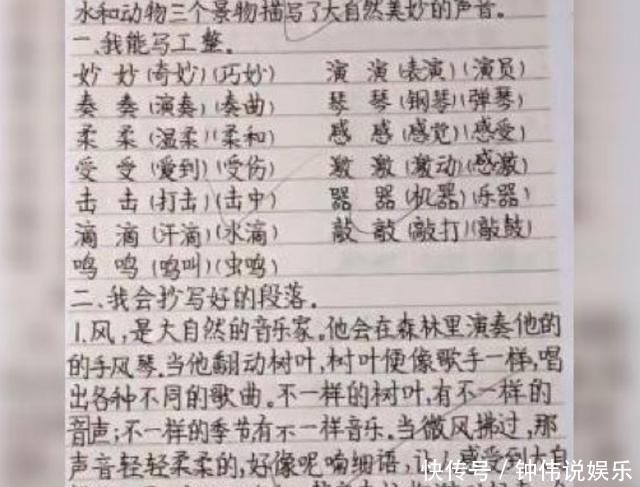 水和动物三个景物描写了大自然美妙的声音。
一、我能写工整。
妙 妙(奇妙)(巧妙) 演 演(表演)(演员)
奏 奏(演奏)(奏曲) 琴 琴(钢琴)(弹琴)
柔 柔(温柔)(柔和) 感 感(感觉)(感受)
受 受(受到)(受伤) 激 激(激动)(感激)
击 击(打击)(击中) 器 器(机器)(乐器)
滴 滴(汗滴)(水滴) 敲 敲(敲打)(敲鼓)
鸣 鸣(鸣叫)(虫鸣)
二、我会抄写好的段落。
1.风,是大自然的音乐家。他会在森林里演奏他的
的手风琴。当他翻动树叶,树叶便像歌手一样,唱
出各种不同的歌曲。不一样的树叶,有不一样的
音声;不一样的季节有不一样音乐。当微风拂过,那
声音轻轻柔柔的,好像呢喃细语,让 感受到大自
快传号/钟伟说娱乐